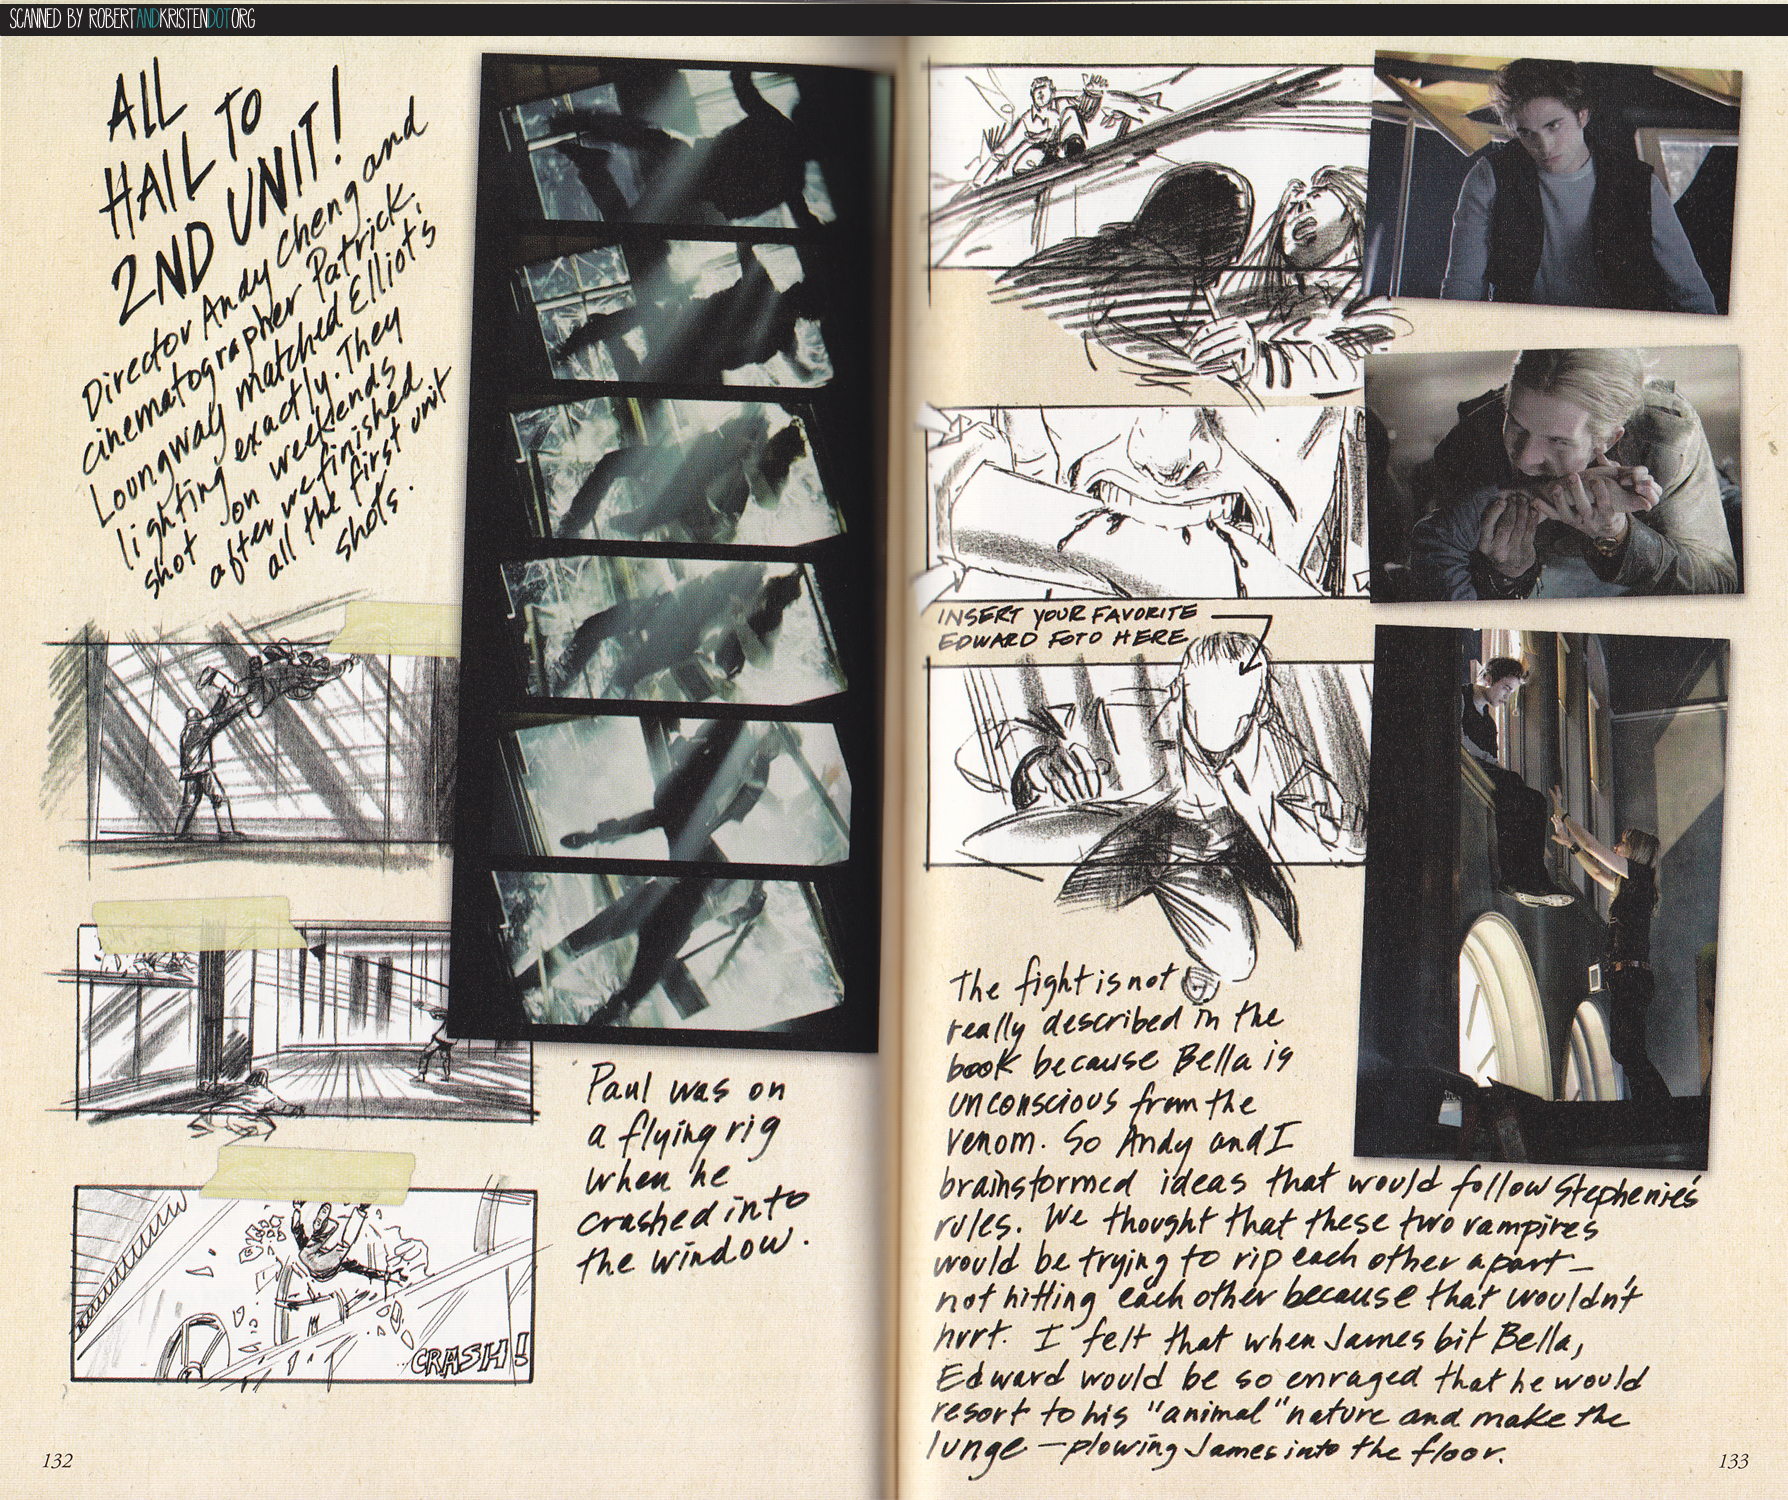 SCANNED BY ROBERTANDKRISTENDOTORG
ALL
HAIL TO
2ND UNIT!
Director Andy Cheng and
cinematographer Patrick
Loungway matched Elliot's
lighting exactly. They
shot on weekends
after we finished
all the first unit
shots.
CRASH!
Paul was on
a flying rig
when he
crashed into
the window.
132
INSERT YOUR FAVORITE
EDWARD FOTO HERE
The fight is not
really described in the
book because Bella is
unconscious from the
venom. So Andy and I
brainstormed ideas that would follow Stephenie's
rules. We thought that these two vampires
would be trying to rip each other apart—
not hitting each other because that wouldn't
hurt. I felt that when James bit Bella,
Edward would be so enraged that he would
resort to his "animal" nature and make the
lunge—plowing James into the floor.
133